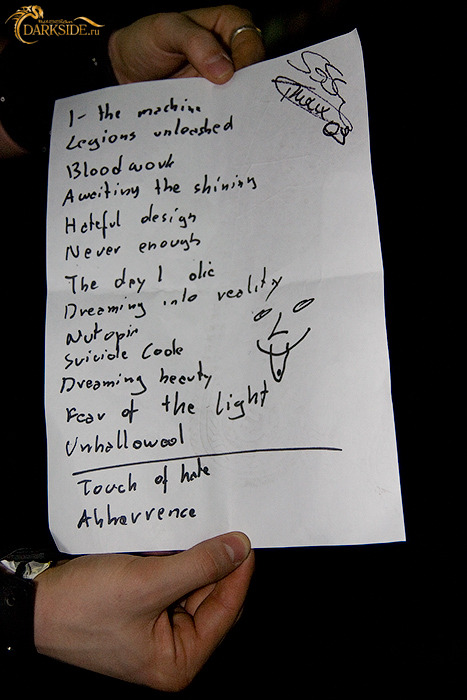 DARKSIDE.ru
I - the machine
Legions unleashed
Bloodwork
Awaiting the shining
Hateful design
Never enough
The day I die
Dreaming into reality
Nutopia
Suicide Code
Dreaming beauty
Fear of the light
Unhallowed
Touch of hate
Abhorrence